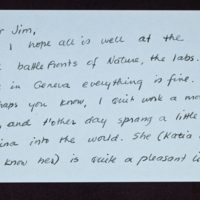 r Jim,
I hope all is well at the
battle fronts of Nature, the labs.
in Geneva everything is fine.
haps you know, I quit work a mo
, and t'other day sprang a little
ina into the world. She (Katia
know her) is quite a pleasant li